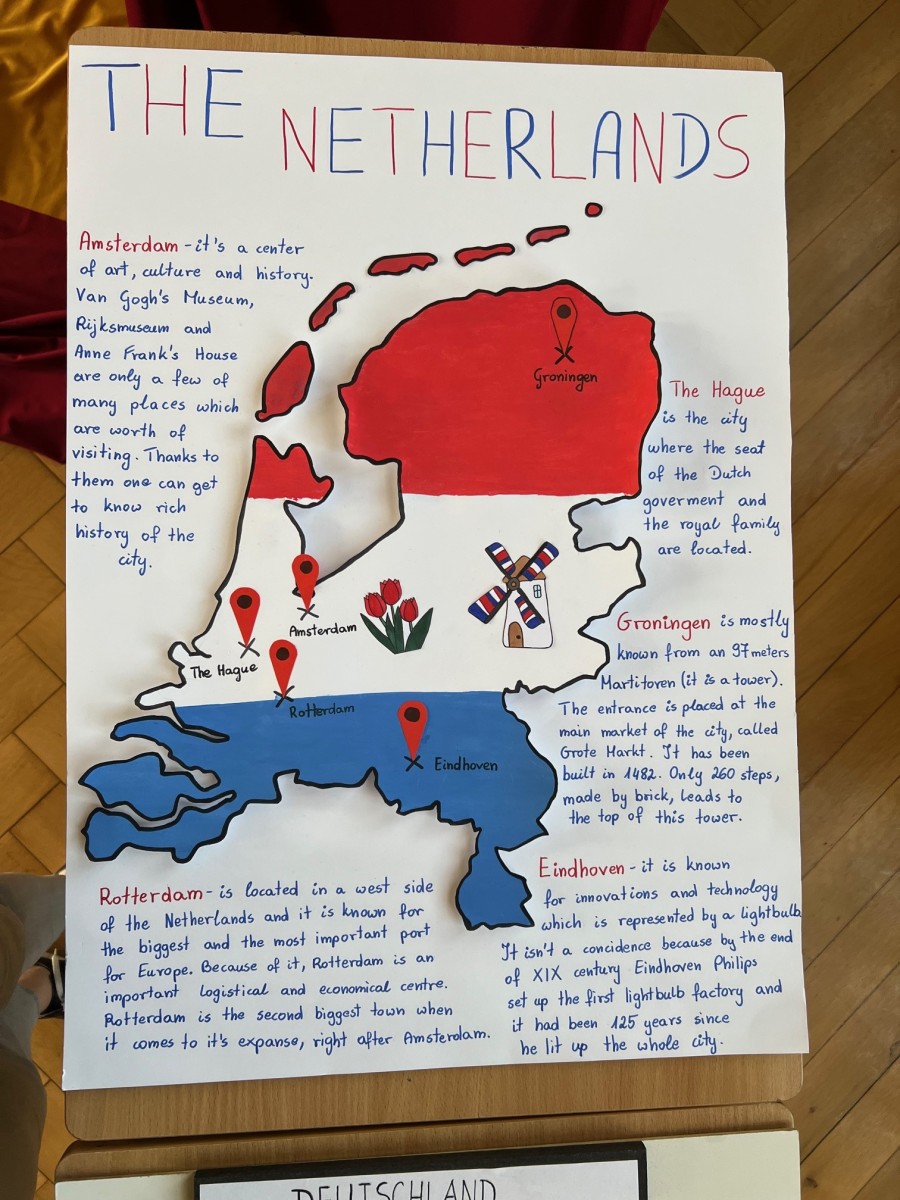 THE
NETHERLANDS
Amsterdam - it's a center
of art, culture and history.
Van Gogh's Museum,
Rijksmuseum and
Anne Frank's House
are only a few of
many places which
are worth of
visiting. Thanks to
them one can get
to know rich
history of the
city.
Groningen
The Hague
is the city
where the seat
of the Dutch
goverment and
the royal family
are located.
Amsterdam
The Hague
Rotterdam
Eindhoven
Groningen is mostly
known from an 97 meters
Martitoren (it is a tower).
The entrance is placed at the
main market of the city, called
Grote Markt. It has been
built in 1482. Only 260 steps,
made by brick, leads to
the top of this tower.
Rotterdam - is located in a west side
of the Netherlands and it is known for
the biggest and the most important port
for Europe. Because of it, Rotterdam is an
important logistical and economical centre.
Rotterdam is the second biggest town when
it comes to it's expanse, right after Amsterdam.
Eindhoven - it is known
for innovations and technology
which is represented by a lightbulb
It isn't a concidence because by the end
of XIX century Eindhoven Philips
set up the first lightbulb factory and
it had been 125 years since
he lit up the whole city.
DEUTSCHLAND